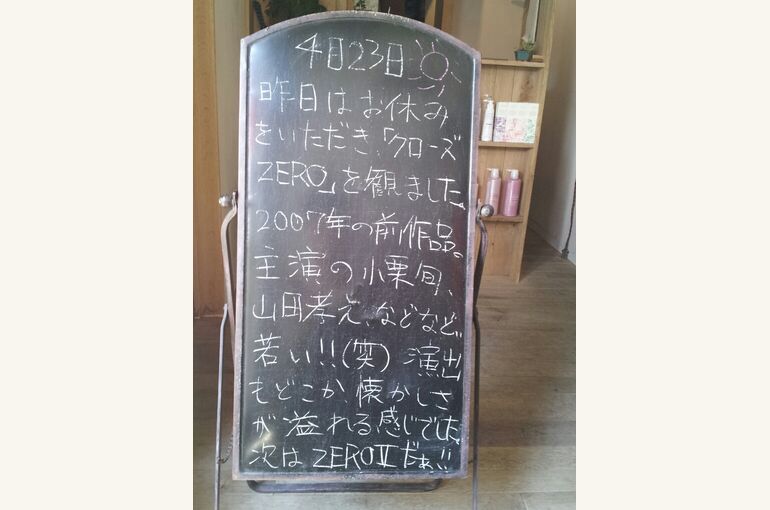 4月23日
昨日はお休み
をいただき、「クローズ
ZERO」を観ました。
2007年の前作品。
主演の小栗旬、
山田孝之、などなど、
若い!!(笑) 演出
もどこか、懐かしさ
が溢れる感じでした。
次は ZEROⅡだぁ!!